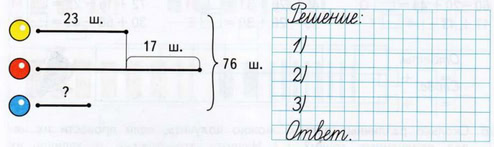 23 ш.
17 ш.
76 ш.
?
Решение:
1)
2)
3)
Ответ.